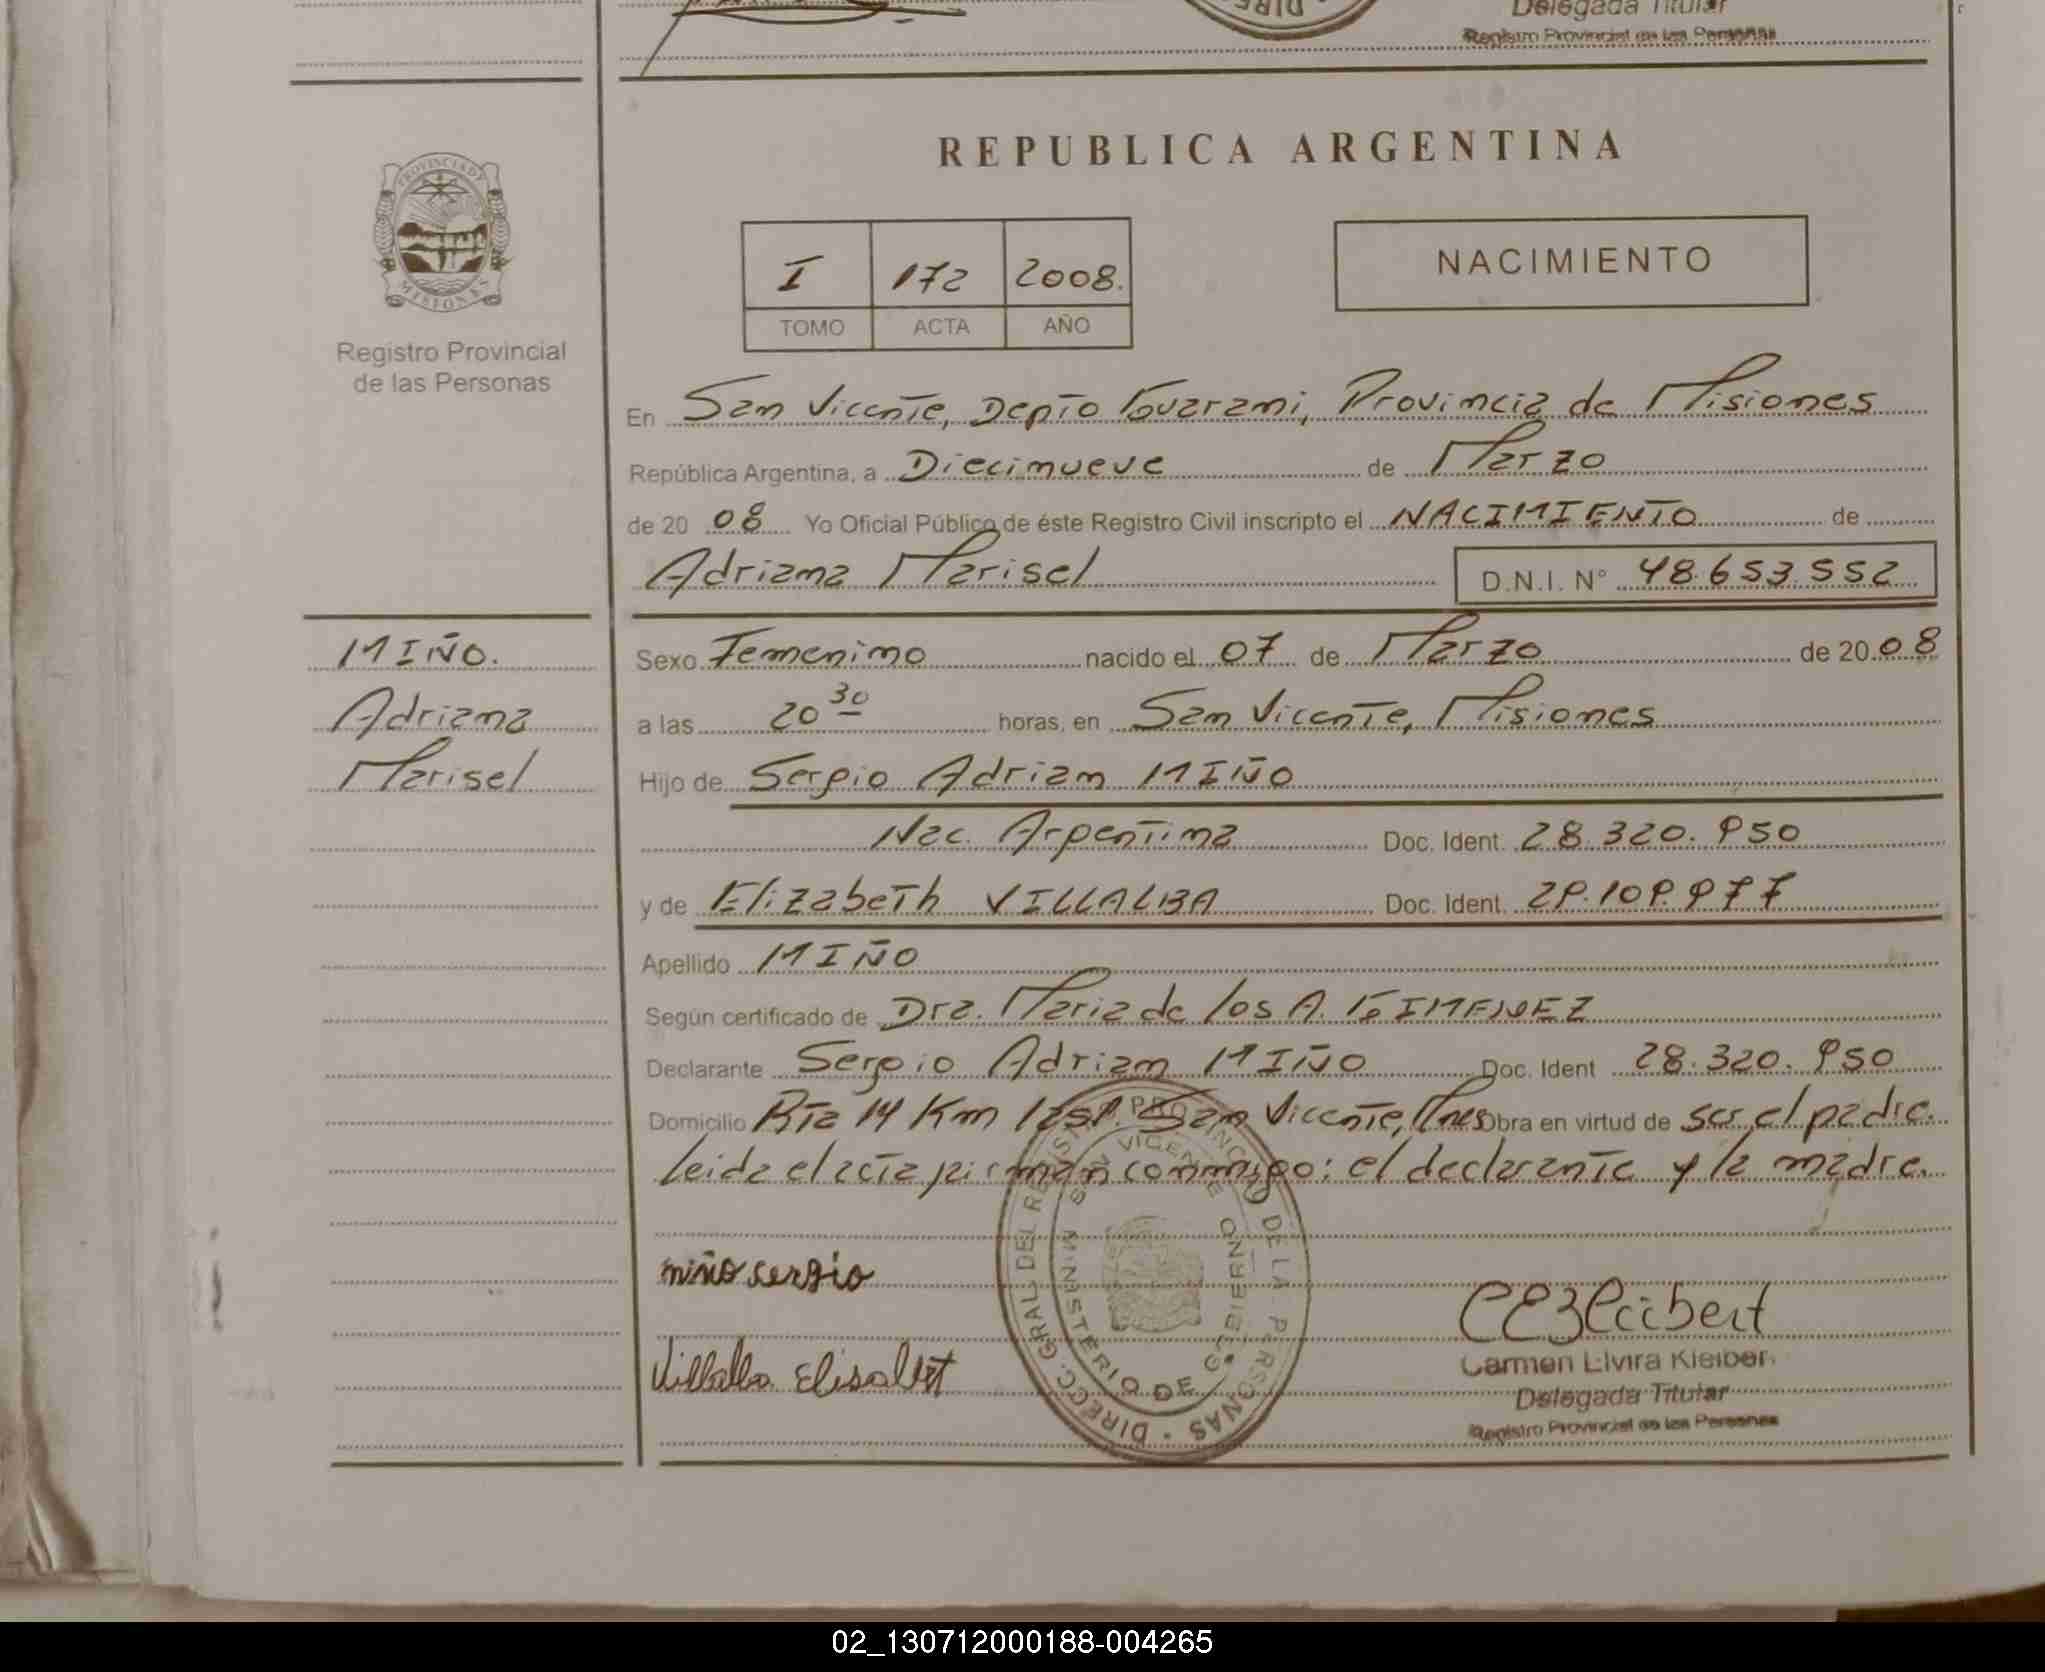 Delegada Titular
Registro Provincial de las Personas
PROVINCIA DE
MISIONES
Registro Provincial
de las Personas
REPUBLICA ARGENTINA
I 172 2008.
TOMO ACTA AÑO
NACIMIENTO
En San Vicente, Depto Guarani, Provincia de Misiones
República Argentina, a Diecinueve de Marzo
de 20 08 Yo Oficial Público de éste Registro Civil inscripto el NACIMIENTO de
Adriana Marisel D.N.I. N° 48.653.552
MIÑO.
Adriana
Marisel
Sexo Femenino nacido el 07 de Marzo de 20 08
a las 20 30 horas, en San Vicente, Misiones
Hijo de Sergio Adrian MIÑO
Nac. Argentina Doc. Ident. 28.320.950
y de Elizabeth VILLALBA Doc. Ident. 29.109.977
Apellido MIÑO
Según certificado de Dra. Maria de los A. GIMENEZ
Declarante Sergio Adrian MIÑO Doc. Ident 28.320.950
Domicilio Rta 14 Km San Vicente, Mnes Obra en virtud de ser el padre.
Leida el acta firman conmigo: el declarante y la madre.
miño sergio
Villalba Elisabet
DIRECC. GRAL. DEL REGISTRO PROVINCIAL DE LA PERSONAS
SAN VICENTE
MINISTERIO DE GOBIERNO
CEKleibert
Carmen Elvira Kleiber
Delegada Titular
Registro Provincial de las Personas
02_130712000188-004265